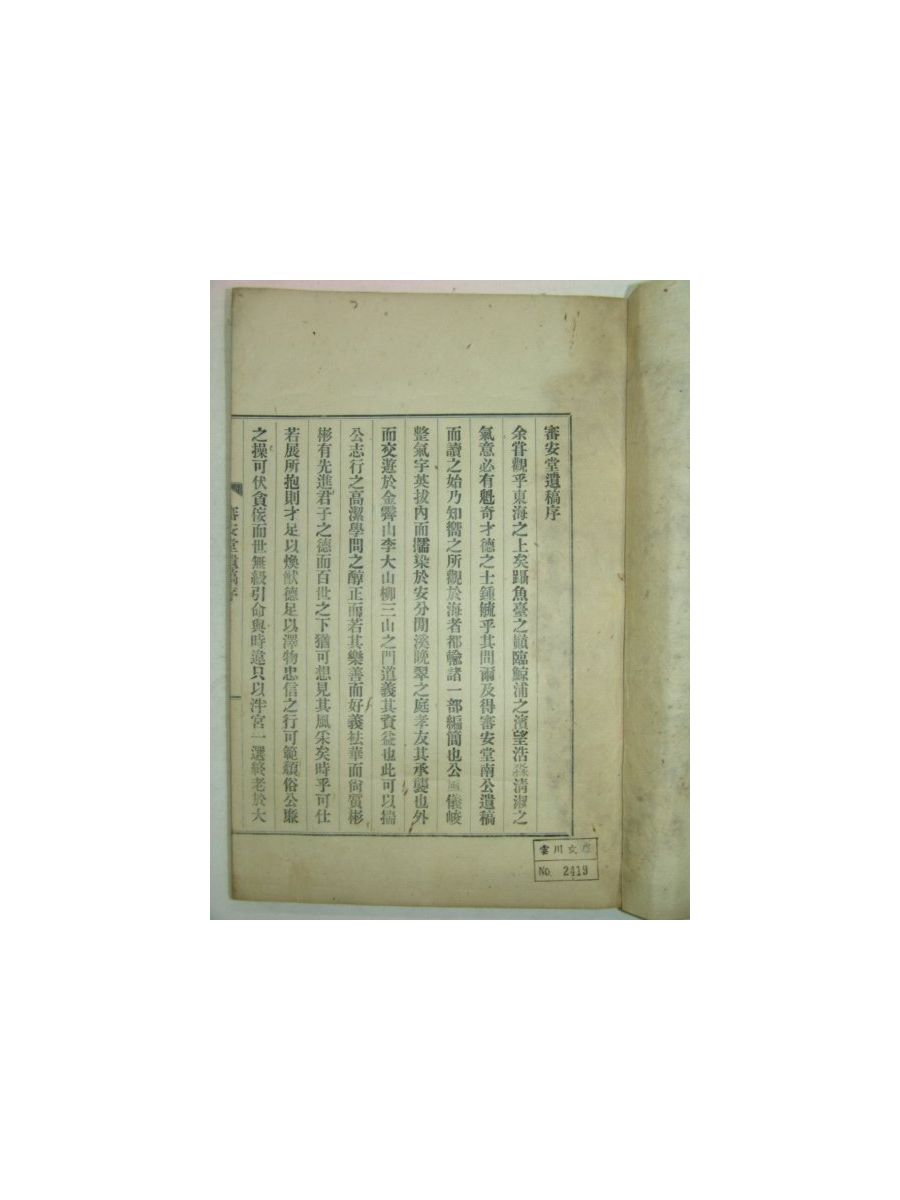 審安堂遺稿序
余甞觀乎東海之上矣躡魚臺之巓臨鯨浦之濱望浩淼淸淑之
氣意必有魁奇才德之士鍾毓乎其間爾及得審安堂南公遺稿
而讀之始乃知嚮之所觀於海者都輸諸一部編簡也公風儀峻
整氣宇英拔內而擩染於安分閒溪晩翠之庭孝友其承襲也外
而交遊於金霽山李大山柳三山之門道義其資益也此可以揣
公志行之高潔學問之醇正而若其樂善而好義袪華而尙質彬
彬有先進君子之德而百世之下猶可想見其風采矣時乎可仕
若展所抱則才足以煥猷德足以澤物忠信之行可範頹俗公廉
之操可伏貪侫而世無級引命與時違只以泮宮一選終老於大
審安堂遺稿序
一
雲川文庫
No. 2419